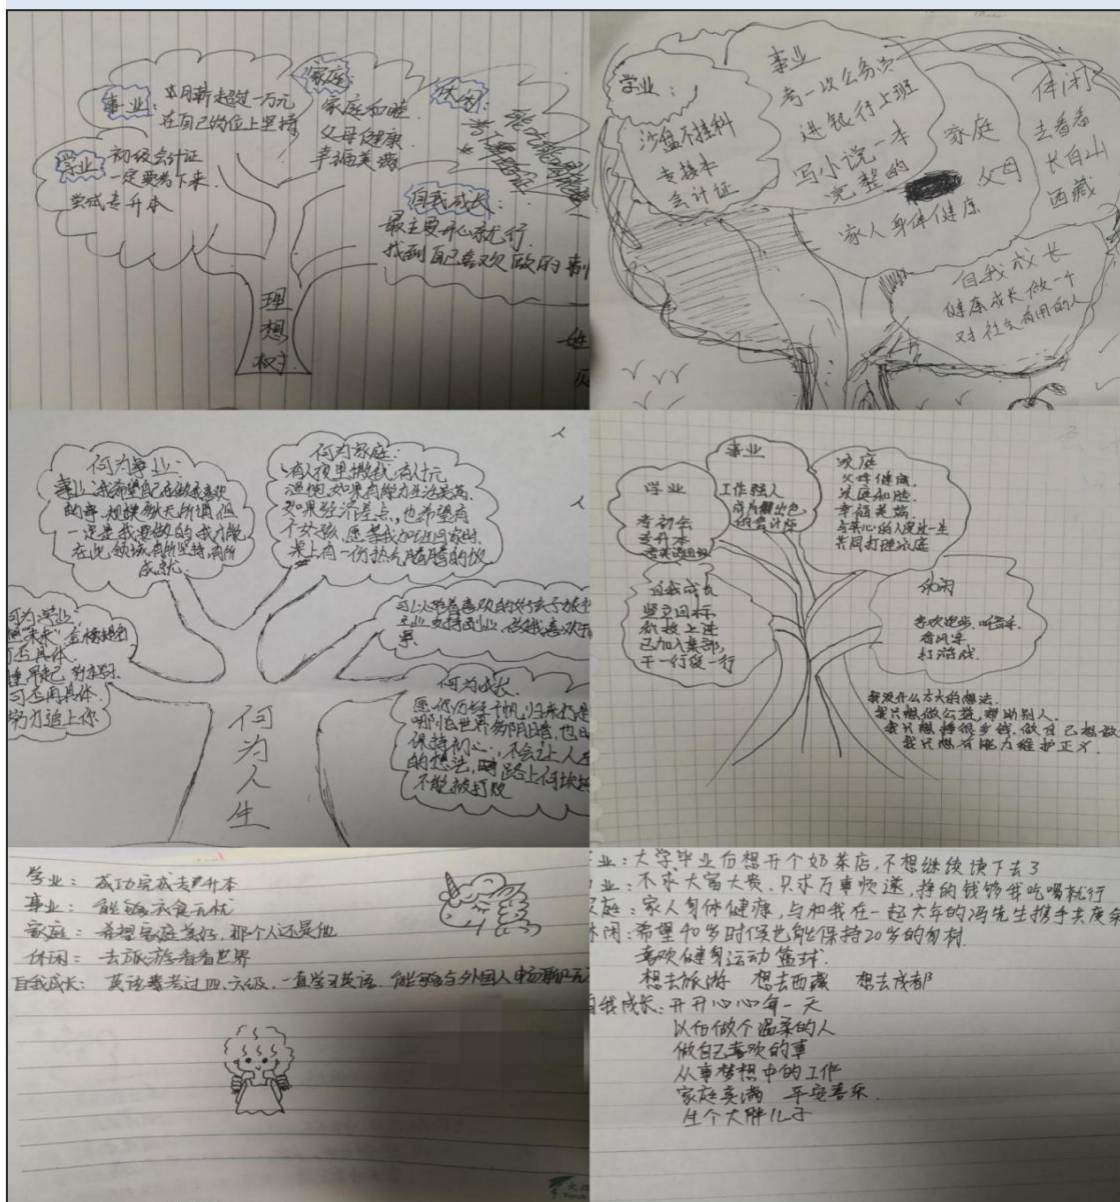 事业：本月薪超过一万元
在自己岗位上坚持
学业：初级会计证
一定要考下来
尝试专升本
家庭
家庭和睦
父母健康
幸福美满
休闲：
自我成长：
最主要开心就行
找到自己喜欢做的事
理
想
树
学业：
沙盘不挂科
专接本
会计证
事业
考一次公务员
进银行上班
写小说一本
完整的
家庭
父母
家人身体健康
休闲
去看看
长白山
西藏
自我成长
健康成长做一个
对社会有用的人
何为事业：
事业：我希望自己在做我喜欢
的事,
一定是我要做的 我才能
在此领域有所坚持,有所
成就.
何为家庭：
如果有能力生活美满,
如果经济差点,也希望有
个女孩,愿等我加班回家时.
桌上有一份热气腾腾的饭
何为学业
努力追上你
何为成长.
愿你历经千帆,归来仍是
保持初心,不会让人左
的想法,
不能被打败
何
为
人
生
学业
考初会
专升本
事业
工作强人
成为出色
的会计师
家庭
父母健康.
家庭和睦
幸福美满.
与关心的人度过一生
共同打理家庭
自我成长
坚定目标
积极上进
已加入某部,
干一行爱一行
休闲
喜欢跑步、听音乐.
看风景.
打游戏.
我没什么太大的想法.
我只想做公益,帮助别人.
我只想挣很多钱.做自己想做
我只想有能力维护正义.
学业：成功完成专升本
事业：能够衣食无忧
家庭：希望家庭美好，那个人还是他
休闲：去旅游看看世界
自我成长：英语要考过四、六级，一直学习英语，能够与外国人畅聊无
业：大学毕业后想开个奶茶店，不想继续读下去了
业：不求大富大贵，只求万事顺遂，挣的钱够我吃喝就行
家庭：家人身体健康，与和我在一起六年的冯先生携手共度余
休闲：希望40岁时候也能保持20岁的身材.
喜欢健身运动 篮球.
想去旅游 想去西藏 想去成都
自我成长：开开心心每一天
以后做个温柔的人
做自己喜欢的事
从事梦想中的工作
家庭美满 平安喜乐.
生个大胖儿子